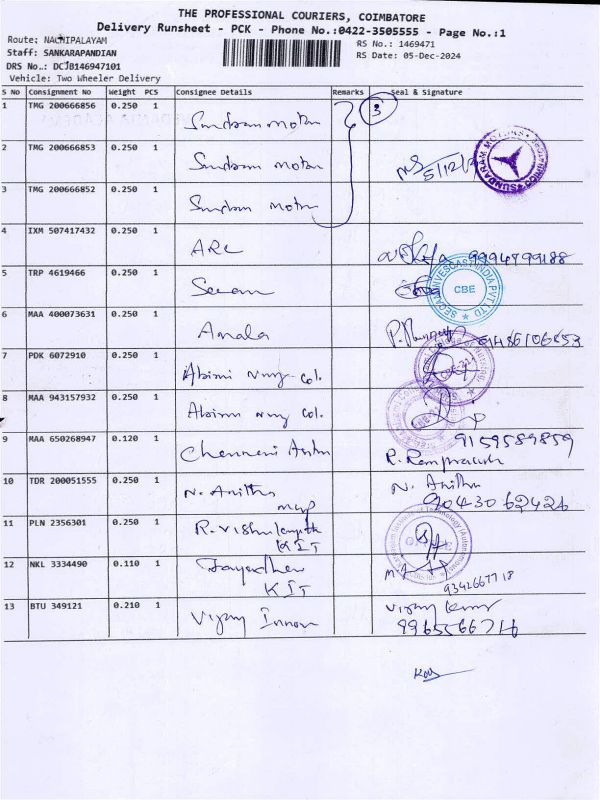 THE PROFESSIONAL COURIERS, COIMBATORE
Delivery Runsheet - PCK - Phone No.:0422-3505555 - Page No.:1
Route: NACHIPALAYAM
RS No.: 1469471
Staff: SANKARAPANDIAN
RS Date: 05-Dec-2024
DRS No.: DCJB146947101
Vehicle: Two Wheeler Delivery
S No Consignment No Weight PCS Consignee Details Remarks Seal & Signature
1 TMG 200666856 0.250 1 Sundram motor 3
2 TMG 200666853 0.250 1 Sundram motor 5/12/ SUNDARAM MOTORS
3 TMG 200666852 0.250 1 Sundram motor
4 IXM 507417432 0.250 1 ARC
5 TRP 4619466 0.250 1 CBE
6 MAA 400073631 0.250 1 Amala
7 PDK 6072910 0.250 1 Abirmi col.
8 MAA 943157932 0.250 1 Abirmi col.
9 MAA 650268947 0.120 1 Chenneni 9159589859
R. Ramprakash
10 TDR 200051555 0.250 1 N. Anitha N. Anitha
90430 62426
11 PLN 2356301 0.250 1 R. Vishnu
KIT
12 NKL 3334490 0.110 1 Jayadhev
KIT
9342667718
13 BTU 349121 0.210 1 Vijay Vijay Kumar
9965566716